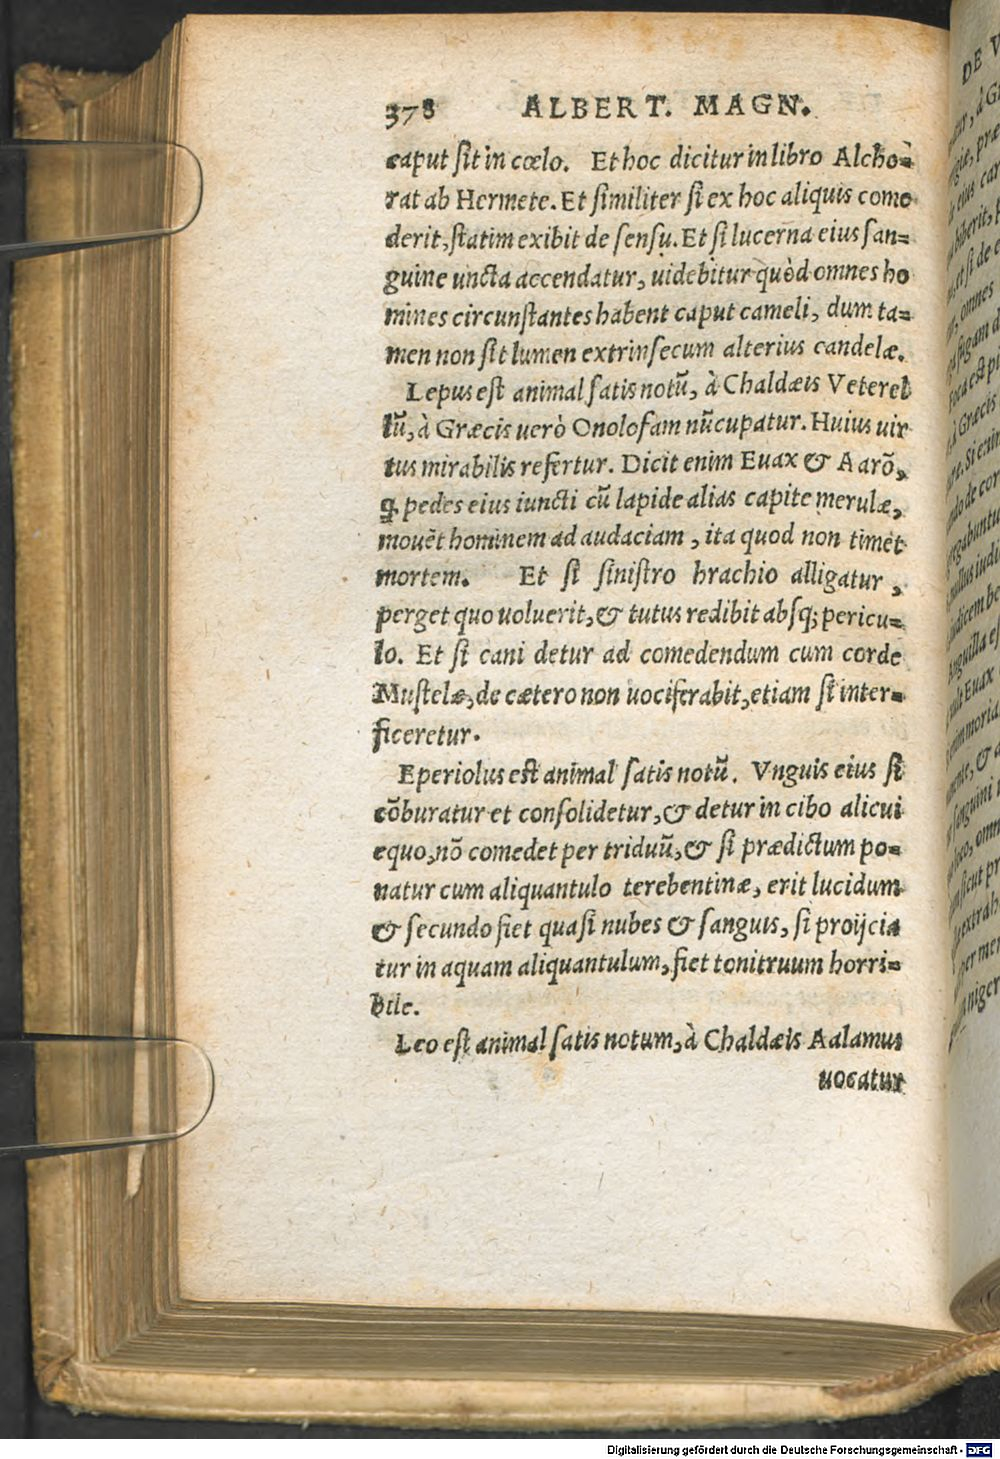 378 ALBERT. MAGN.
caput sit in cœlo. Et hoc dicitur in libro Alcho=
rat ab Hermete. Et similiter si ex hoc aliquis come
derit, statim exibit de sensu. Et si lucerna eius san=
guine uncta accendatur, uidebitur quòd omnes ho
mines circunstantes habent caput cameli, dum ta=
men non sit lumen extrinsecum alterius candelæ.
Lepus est animal satis notũ, à Chaldæis Veterel
lũ, à Græcis uerò Onolofam nũcupatur. Huius uir
tus mirabilis refertur. Dicit enim Euax & Aarõ,
ꝗ pedes eius iuncti cũ lapide alias capite merulæ,
mouẽt hominem ad audaciam, ita quod non timet
mortem. Et si sinistro brachio alligatur,
perget quo uoluerit, & tutus redibit absq; pericu=
lo. Et si cani detur ad comedendum cum corde
Mustelæ, de cætero non uociferabit, etiam si inter=
ficeretur.
Eperiolus est animal satis notũ. Vnguis eius si
cõburatur et consolidetur, & detur in cibo alicui
equo, nõ comedet per triduũ, & si prædictum po=
natur cum aliquantulo terebentinæ, erit lucidum
& secundo fiet quasi nubes & sanguis, si proijcia
tur in aquam aliquantulum, fiet tonitruum horri=
bile.
Leo est animal satis notum, à Chaldæis Aalamus
uocatur
Digitalisierung gefördert durch die Deutsche Forschungsgemeinschaft - DFG